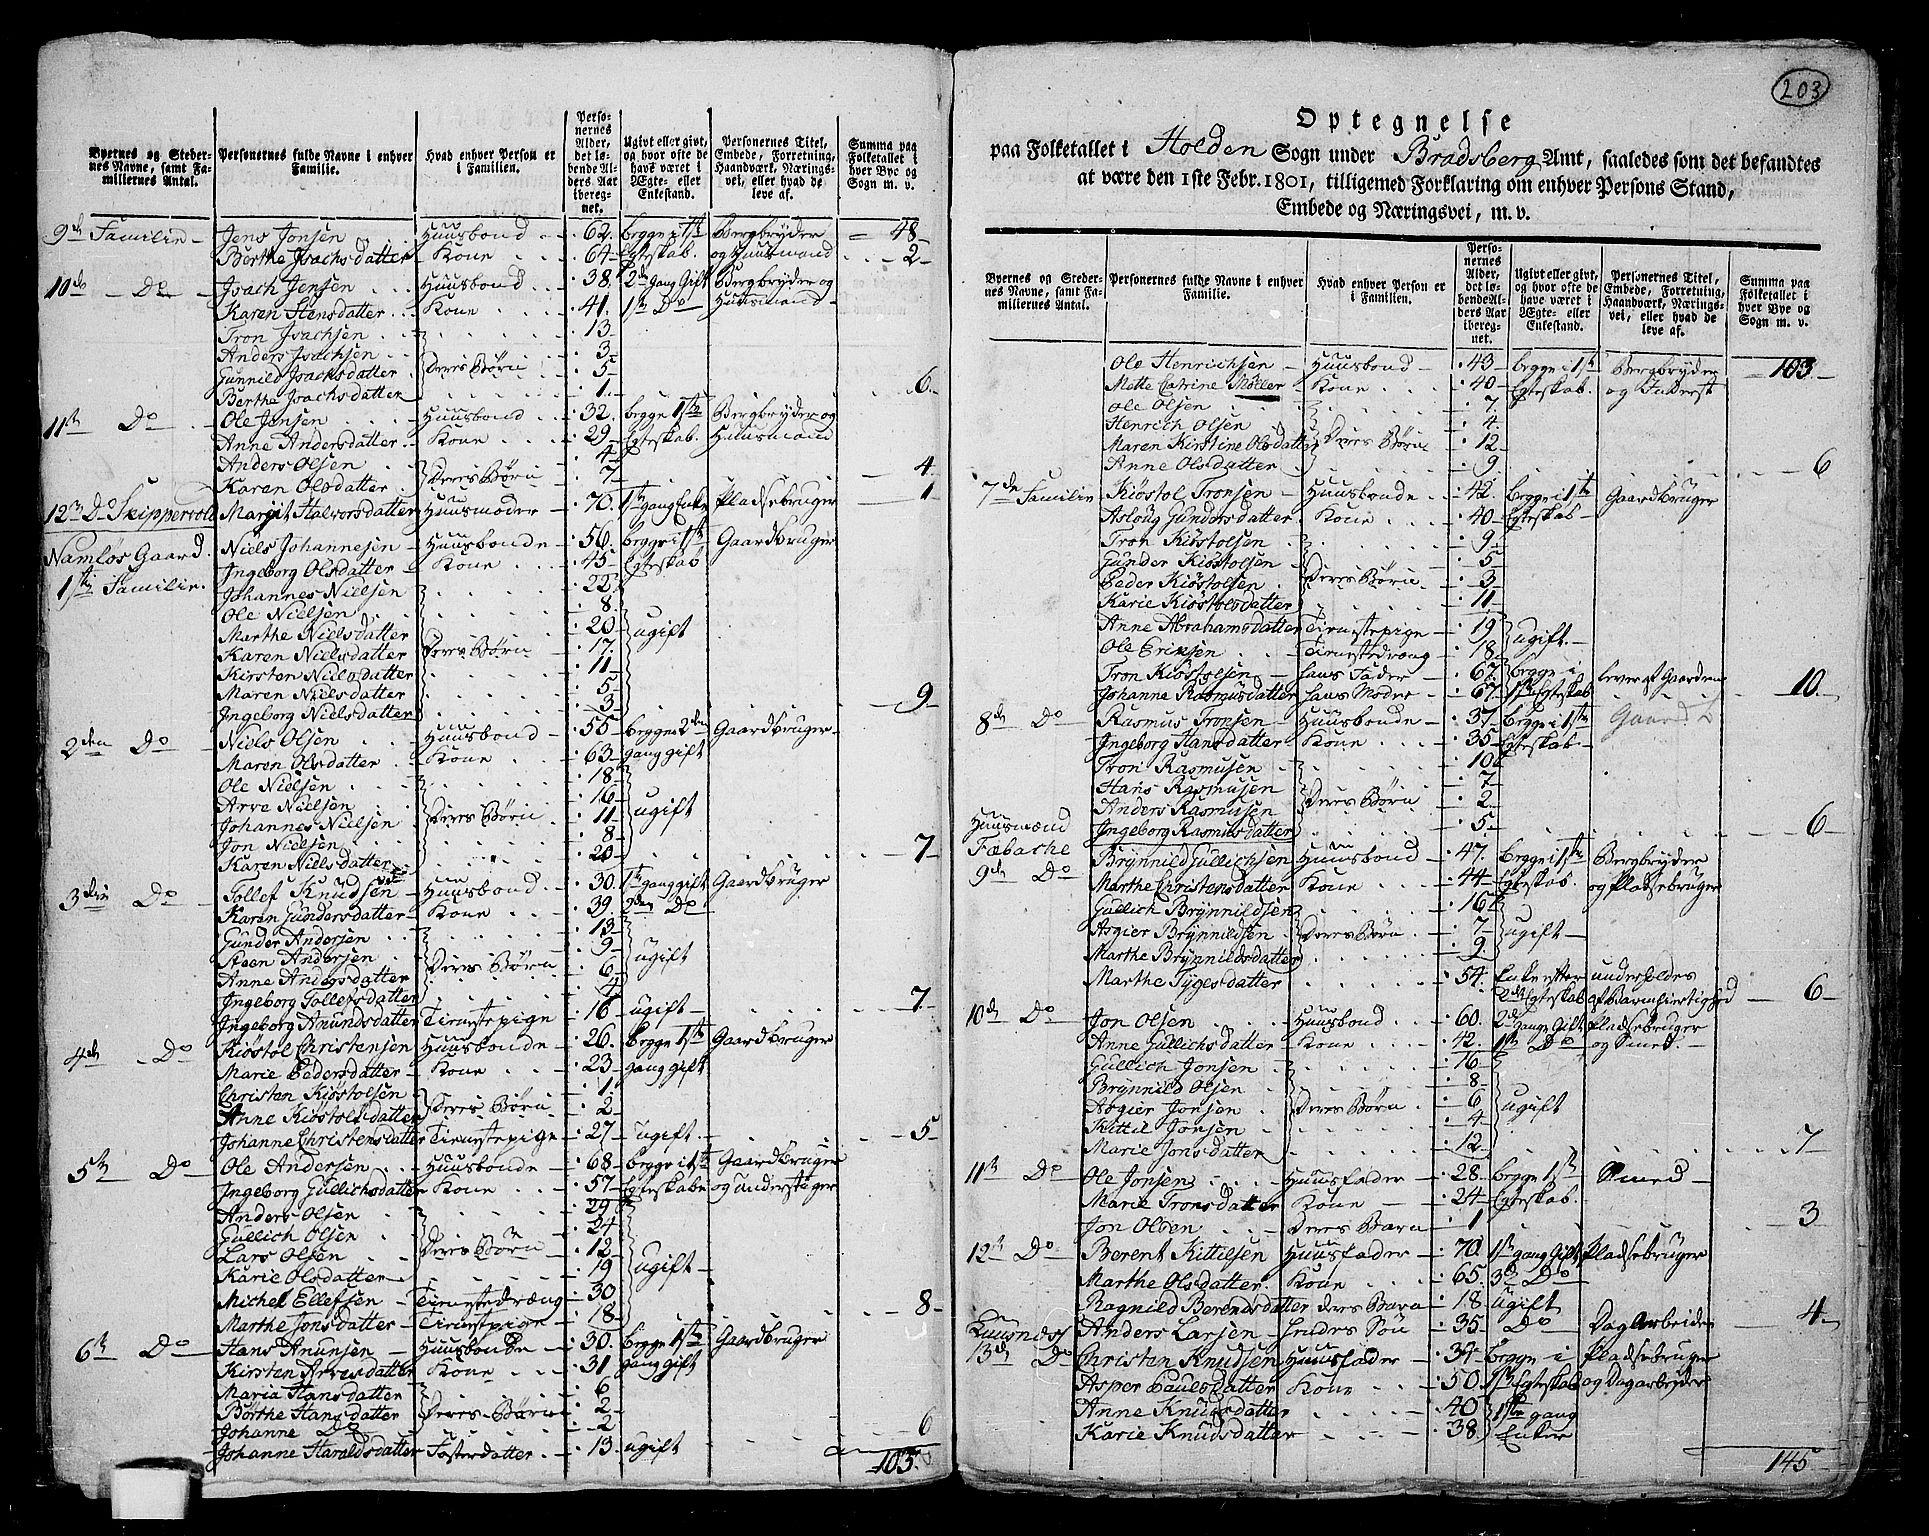 Byernes og Stedernes Navne, samt Familiernes Antal. | Personernes fulde Navne i enhver Familie. | Hvad enhver Person er i Familien. | Personernes Alder, det løbende Alders Aar iberegnet. | Ugivt eller givt, og hvor ofte de have været i Ægte- eller Enkestand. | Personernes Titel, Embede, Forretning, Haandværk, Næringsvei, eller hvad de leve af. | Summa paa Folketallet i hver Bye og Sogn m. v.
9de Familie - Jens Jonsen Huusbond 62. begge i 1ste Bergbryder 48
Berthe Isachsdatter Kone 64 Egteskab. og Huusmand 2
10de Do Isach Jensen Huusbond 38. 2den Gang Gift Bergbryder og
Karen Stensdatter Kone 41. 1ste Do Huusmand
Tron Isachsen 13
Anders Isachsen 3
Gunnild Isachsdatter Deres Børn 5
Berthe Isachsdatter 1. 6
11te Do Ole Jensen Huusbond 32. begge 1ste Bergbryder og
Anne Andersdatter Kone 29 Egteskab. Huusmand
Anders Olsen 4
Karen Olsdatter Deres Børn 7 4
12te Do Skippervold Margit Halvorsdatter Huusmoder 70. 1ste gang Enke Pladsebruger 1
Namløs Gaard. Niels Johannesen Huusbonde 56. begge i 1ste Gaardbruger
Ingeborg Olsdatter Kone 45 Egteskab
1ste Familie. Johannes Nielsen 22
Ole Nielsen 8
Marthe Nielsdatter 20 ugift
Karen Nielsdatter Deres Børn 17.
Kirsten Nielsdatter 11
Maren Nielsdatter 5
Ingeborg Nielsdatter 3 9
2den Do Niels Olsen Huusbond 55 begge 2den Gaardbruger
Maren Olsdatter Kone 63 gang gift
Ole Nielsen 18
Arve Nielsen 16
Johannes Nielsen Deres Børn 11 ugift
Jon Nielsen 8
Karen Nielsdatter 20 7
3die Do Tollef Knudsen Huusbond 30. 1ste gang gift Gaardbruger
Karen Gundersdatter Kone 39. 2den Do
Gunder Andersen 13
Steen Andersen 9
Anne Andersdatter Deres Børn 6 ugift
Ingeborg Tollefsdatter 4
Ingeborg Amundsdatter Tienestepige 16 ugift 7
4de Do Kiøstol Christensen Huusbonde 26. begge 1ste Gaardbruger
Marie Pedersdatter Kone 23 gang gift
Christen Kiøstolsen 1
Anne Kiøstolsdatter Deres Børn 2
Johanne Christensdatter Tienestepige 27 ugift 5
5te Do Ole Andersen Huusbonde 68 begge i 1ste Gaardbruger
Ingeborg Gullichsdatter Kone 57 Egteskabe og understøger
Anders Olsen 29
Gullich Olsen 24
Lars Olsen Deres Børn 12
Karie Olsdatter 19 ugift
Michel Ellefsen Tienestedræng 30
Marthe Jonsdatter Tienestepige 18 8
6te Do Hans Anunsen Huusbonde 30. begge 1ste Gaardbruger
Kirsten Arvesdatter Kone 31 gang gift
Maria Hansdatter 6
Børthe Hansdatter Deres Børn 2
Johanne Do 2
Johanne Haraldsdatter Søsterdatter 13 ugift 6
103.
203
Optegnelse
paa Folketallet i Holden Sogn under Bradsberg Amt, saaledes som det befandtes
at være den 1ste Febr. 1801, tilligemed Forklaring om enhver Persons Stand,
Embede og Næringsvei, m. v.
Byernes og Stedernes Navne, samt Familiernes Antal. | Personernes fulde Navne i enhver Familie. | Hvad enhver Person er i Familien. | Personernes Alder, det løbende Alders Aar iberegnet. | Ugivt eller givt, og hvor ofte de have været i Ægte- eller Enkestand. | Personernes Titel, Embede, Forretning, Haandværk, Næringsvei, eller hvad de leve af. | Summa paa Folketallet i hver Bye og Sogn m. v.
Ole Henrichsen Huusbond 43 begge i 1ste Bergbryder 103
Mette Catrine Møller Kone 40 Egteskab. og Inderst
Ole Olsen 7
Henrich Olsen 4
Maren Kirstine Olsdatter Deres Børn 12
Anne Olsdatter 9 6
7de Familie Kiøstol Tronsen Huusbonde 42. begge i 1ste Gaardbruger
Asloug Gundersdatter Kone 40 Egteskab
Tron Kiøstolsen 9
Gunder Kiøstolsen 5
Peder Kiøstolsen Deres Børn 3
Karie Kiøstolsdatter 11
Anne Abrahamsdatter Tienestepige 19 ugift
Ole Ericsen Tienestedræng 18
Tron Kiøstolsen hans Fader 67. begge i Lever af Gaarden
Johanne Rasmusdatter hans Moder 67 1ste Egteskab 10
8de Do Rasmus Tronsen Huusbonde 37. begge i 1ste Gaardb
Ingeborg Hansdatter Kone 35 Egteskab
Tron Rasmusen 10
Hans Rasmusen 7
Anders Rasmusen Deres Børn 2
Huusmænd Ingeborg Rasmusdatter 5 6
Febache Brynnild Gullichsen Huusbond 47. begge i 1ste Bergbryder
9de Do Marthe Christensdatter Kone 44 Egteskab. og Pladsebruger
Gullich Brynnildsen 16
Asgier Brynnildsen Deres Børn 7 ugift
Marthe Brynnildsdatter 9
Marthe Tygesdatter 54. Enke efter underholdes
2det Egteskab af Barmhiertighed 6
10de Do Jon Olsen Huusbond 60. 2de Gange Gift Pladsebruger
Anne Gullichsdatter Kone 42. 1ste Do og Smed.
Gullich Jonsen 16
Brynnild Olsen 8
Asgier Jonsen Deres Børn 6 ugift
Kittil Jonsen 4
Marie Jonsdatter 12 7
11te Do Ole Jonsen Huusfader 28. begge 1ste Smed
Marie Tronsdatter Kone 24 Egteskab.
Jon Olsen Deres Barn 1 3
12te Do Berent Kittilsen Huusfader 70. 1ste gang Gift Pladsebruger
Marthe Olsdatter Kone 65. 3de Do
Ragnild Berentsdatter deres Barn 18 ugift
Anders Larsen hendes Søn 35 Do Dag Arbeider 4
13de Do Christen Knudsen Huusfader 34 begge i Pladsebruger
Asper Paulsdatter Kone 50 1ste Egteskab og Dagarbeyder
Anne Knudsdatter 40 1ste gang
Karie Knudsdatter 38 Enker
145